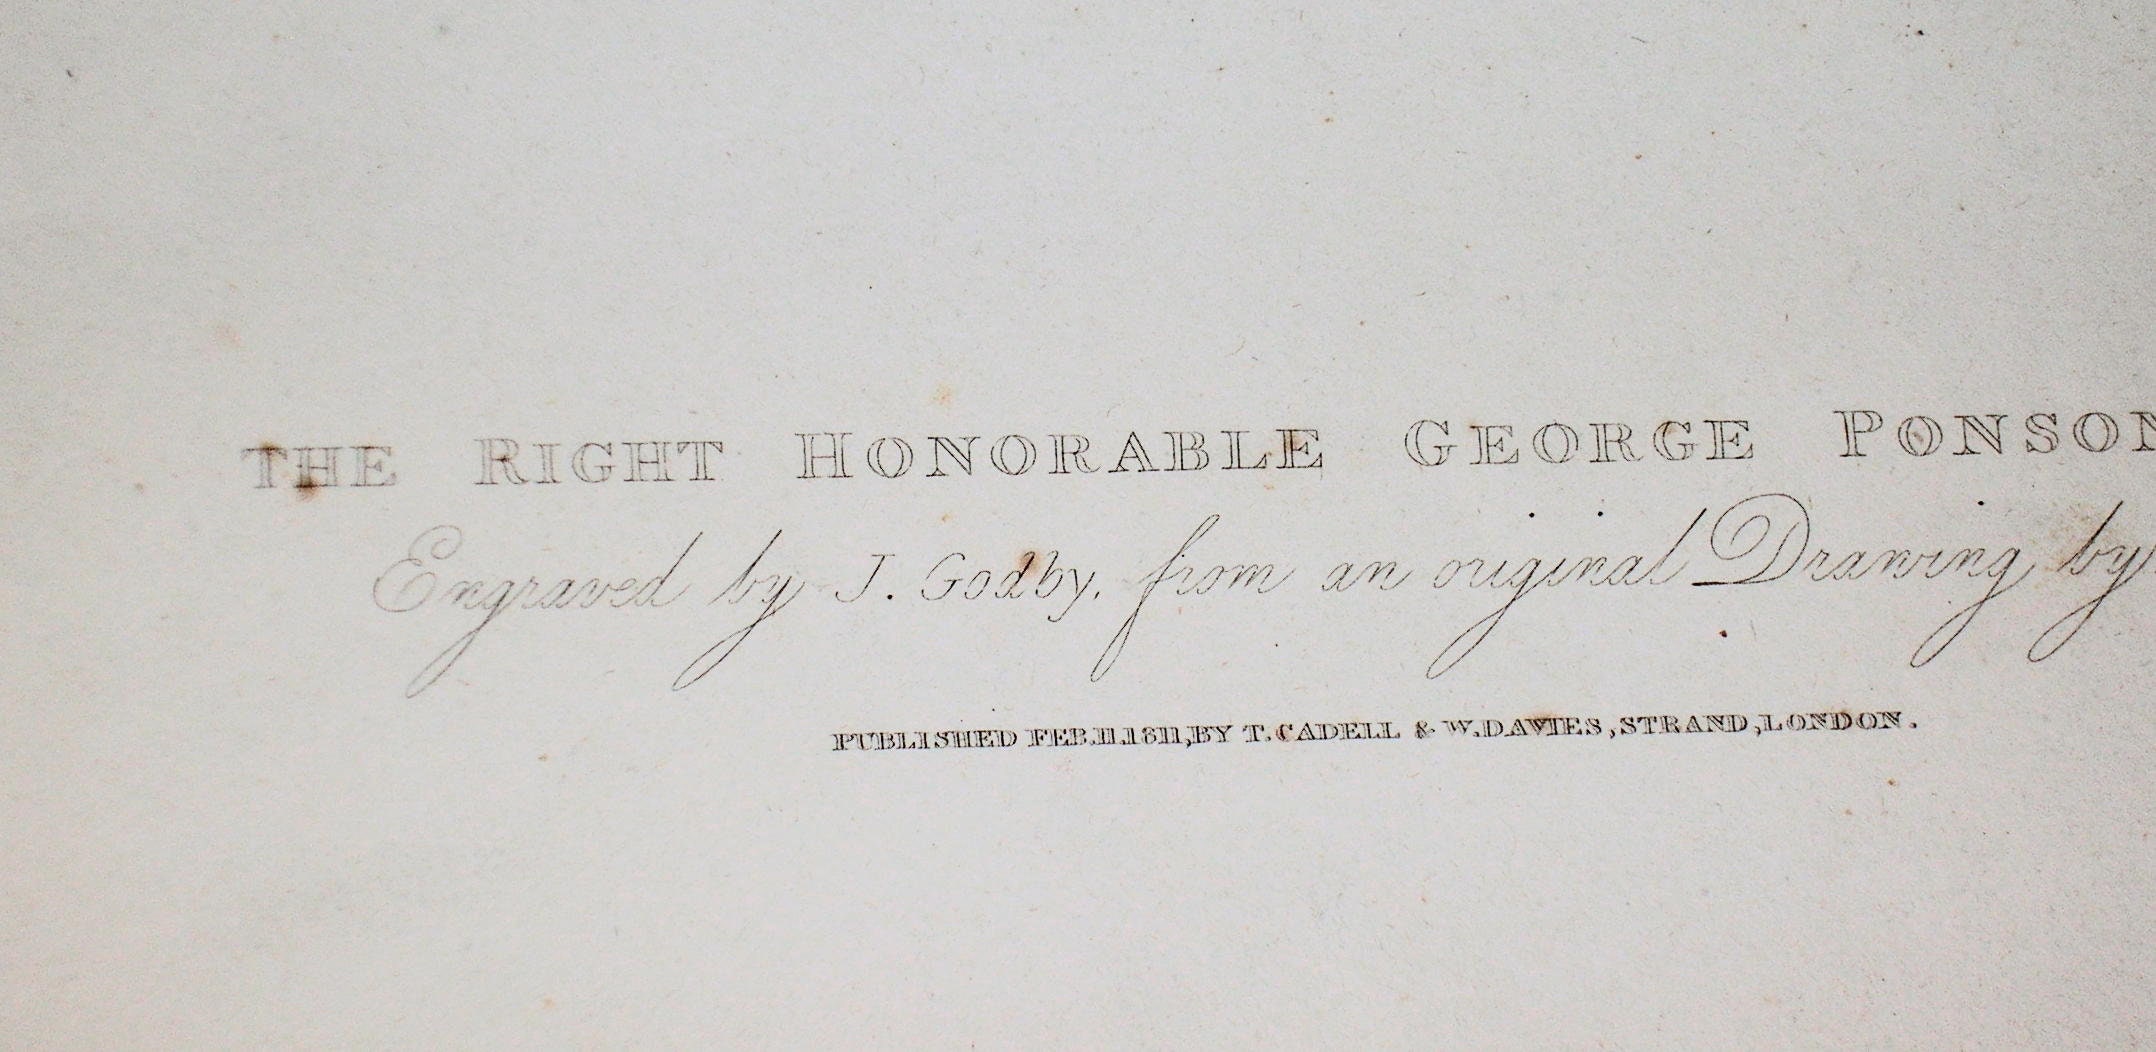 THE RIGHT HONORABLE GEORGE PONSON
Engraved by J. Godby, from an original Drawing by
PUBLISHED FEB.11.1811, BY T. CADELL & W. DAVIES, STRAND, LONDON.